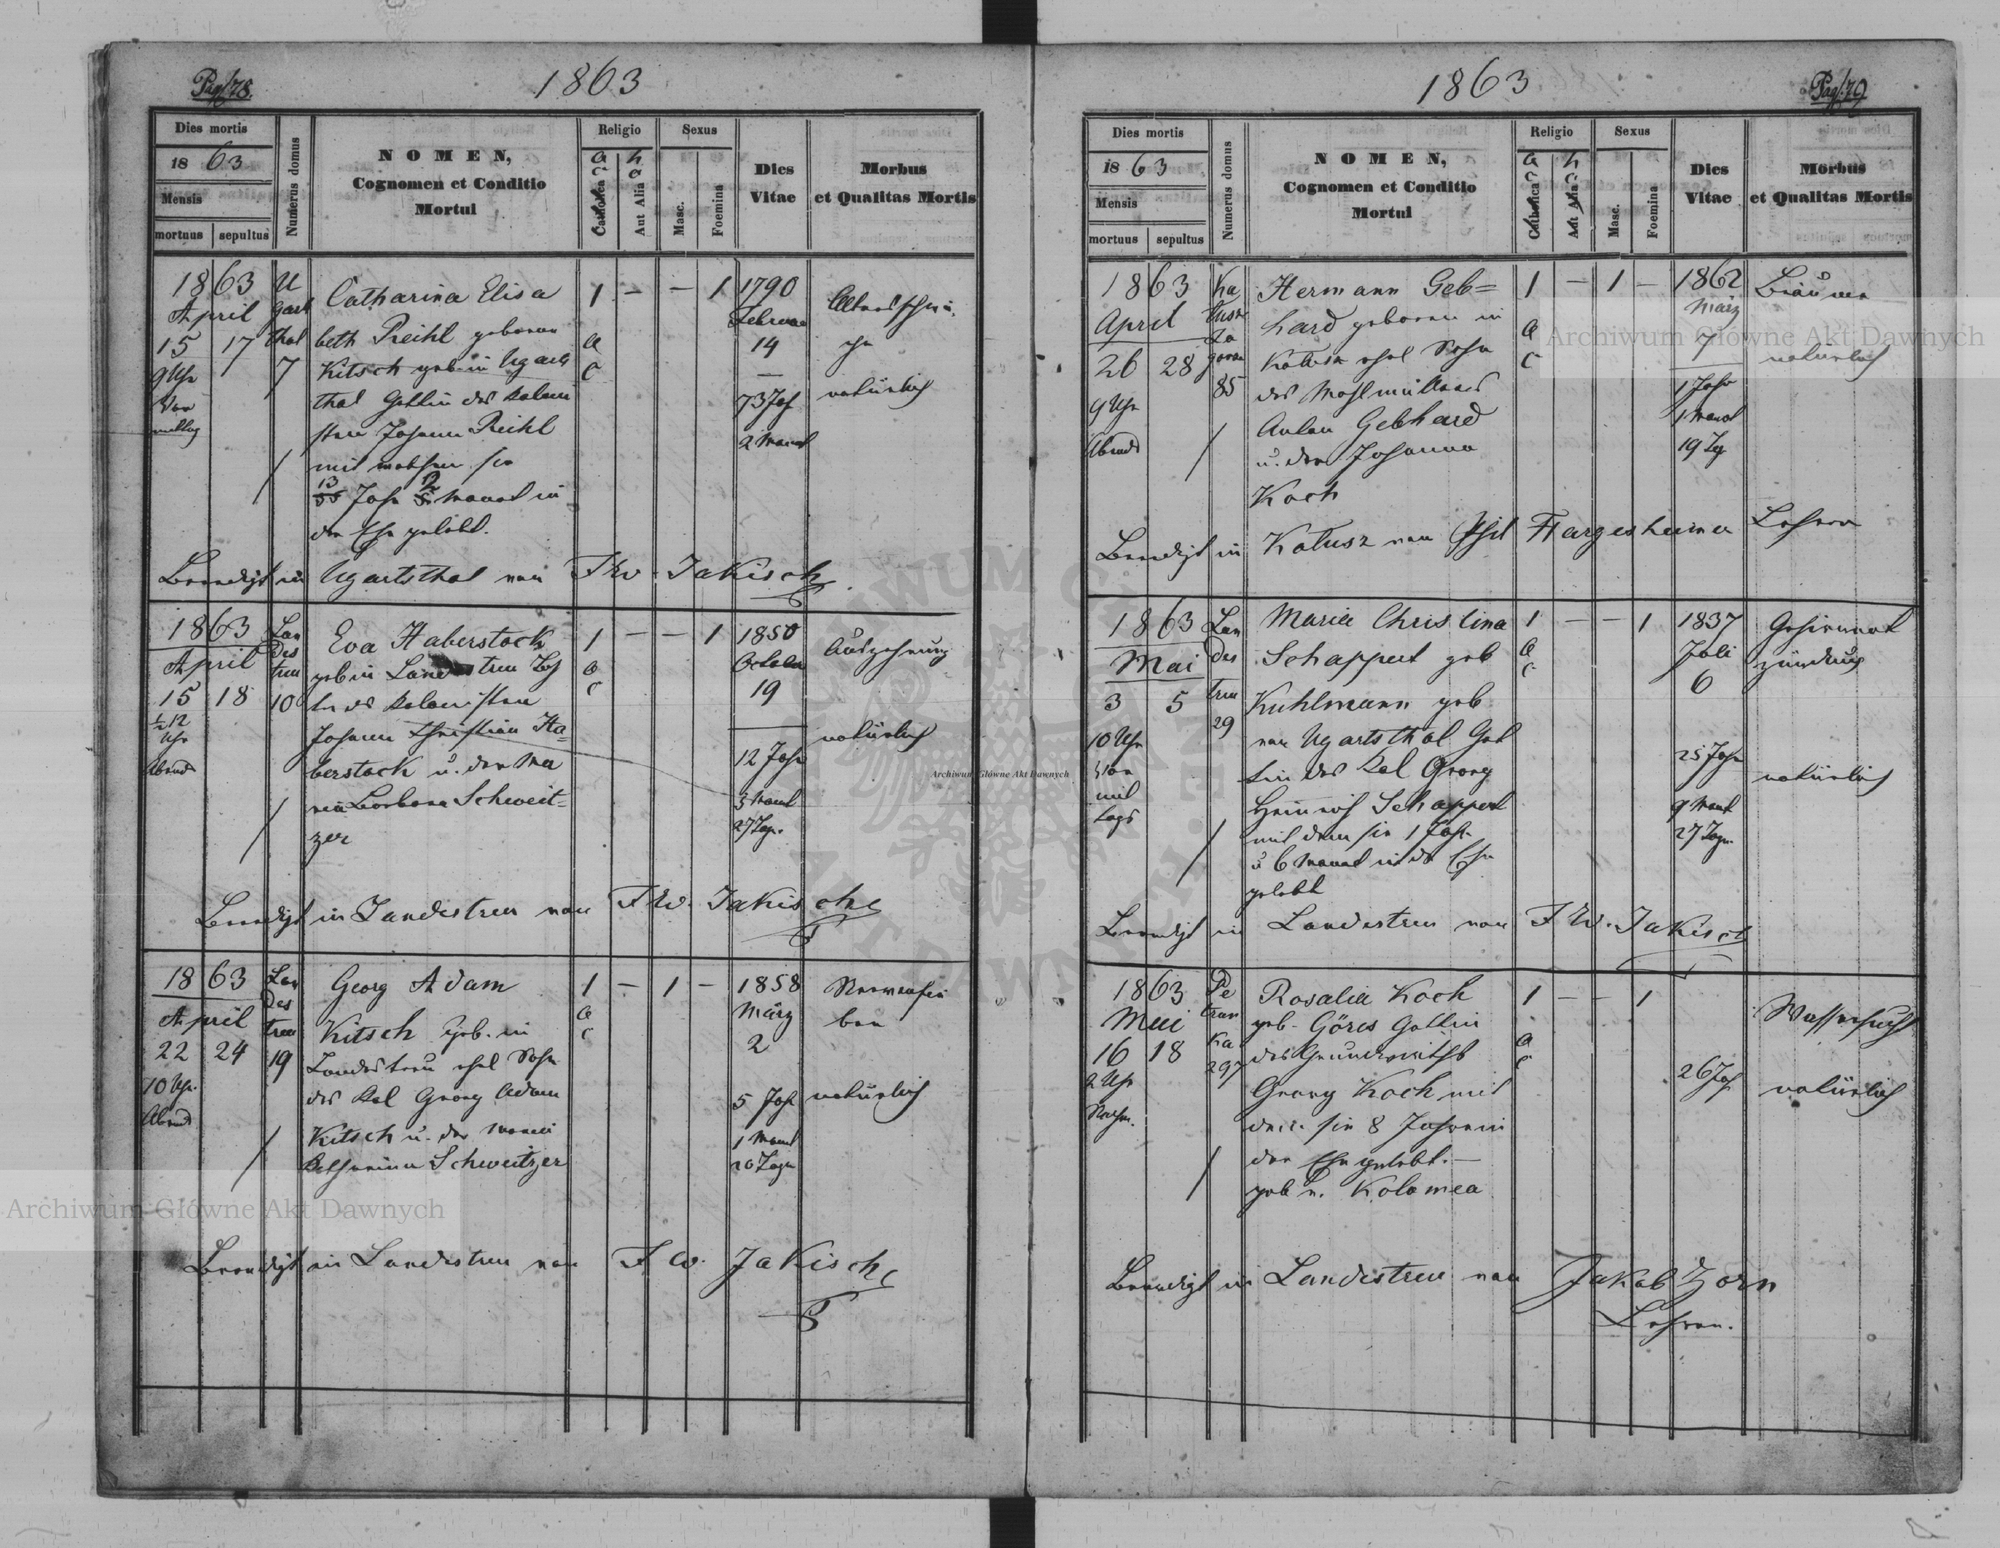 Pag. 78.
1863
Dies mortis
1863
Mensis
mortuus sepultus
Numerus domus
NOMEN,
Cognomen et Conditio
Mortui
Religio
Catholica
Aut Alia
a c
h c
Sexus
Masc.
Foemina
Dies
Vitae
Morbus
et Qualitas Mortis
1863
April
15 17
9 Uhr
Vor
mittag
U
gart
thal
7
Catharina Elisa
beth Reihl geborne
Kitsch geb. in Ugarts
thal Gattin des Koloni
sten Johann Reihl
mit welchem sie
13 Jahr 2 Monat in
der Ehe gelebt.
1 - - 1
a
c
1790
Februar
14
73 Jah
2 Monat
Altersschwä
che
natürlich
Beerdigt in Ugartsthal von Fr. W. Jakisch
1863
April
15 18
½ 12
Uhr
Abends
Lan
des
treu
10
Eva Haberstock
geb in Landestreu Toch
ter des Kolonisten
Johann Christian Ha=
berstock u. der Ma
ria Barbara Schweit=
zer
1 - - 1
a
c
1850
October
19
12 Jahr
5 Monat
27 Tage.
Auszehrung
natürlich
Beerdigt in Landestreu von Fr. W. Jakisch
1863
April
22 24
10 Uhr.
Abend
Lan
des
treu
19
Georg Adam
Kitsch Geb. in
Landestreu ehel Sohn
des Kol Georg Adam
Kitsch u. der
Catharina Schweitzer
1 - 1 -
a
c
1858
März
2
5 Jahr
1 Monat
20 Tage
Nervenfie
ber
natürlich
Beerdigt in Landestreu von F. W. Jakisch
Pag. 79
1863
Dies mortis
1863
Mensis
mortuus sepultus
Numerus domus
NOMEN,
Cognomen et Conditio
Mortui
Religio
Catholica
Aut Alia
a c
h c
Sexus
Masc.
Foemina
Dies
Vitae
Morbus
et Qualitas Mortis
1863
April
26 28
9 Uhr
Abends
Ka
lusz
85
Hermann Geb=
hard geboren in
Kalusz ehel Sohn
des Mahlmüllers
Anton Gebhard
u. der Johanna
Koch
1 - 1 -
a
c
1862
März
7
1 Jahr
1 Monat
19 Tg
Bräune
natürlich
Beerdigt in Kalusz von Phil Hargesheimer Lehrer
1863
Mai
3 5
10 Uhr
Vor
mit
tags
Lan
des
treu
29
Maria Christina
Schappert geb
Kuhlmann geb
von Ugartsthal Gat
tin des Kol Georg
Heinrich Schappert
mit dem sie 1 Jahr
u 6 Monat in der Ehe
gelebt
1 - - 1
a
c
1837
Juli
6
25 Jahr
9 Monat
27 Tage
Gehirnent
zündung
natürlich
Beerdigt in Landestreu von Fr. W. Jakisch
1863
Mai
16 18
2 Uhr
Nachm.
Pe
tran
ka
297
Rosalia Koch
geb. Göres Gattin
des Grundwirths
Georg Koch mit
dem sie 8 Jahre in
der Ehe gelebt. —
geb in Kolomea
1 - - 1
a
c
26 Jah
Wassersucht
natürlich
Beerdigt in Landestreu von Jakob Zorn
Lehrer.
Archiwum Główne Akt Dawnych
Archiwum Główne Akt Dawnych
Archiwum Główne Akt Dawnych